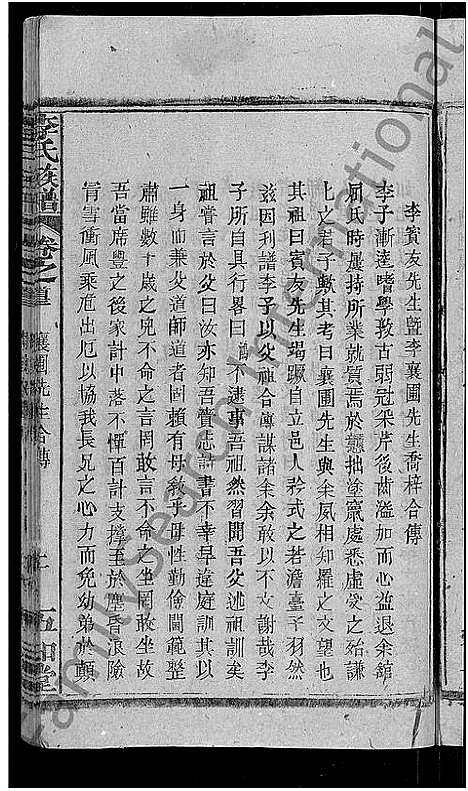 李賓友先生暨李襄圃先生喬梓合傳
李子漸逵嗜學敦古弱冠采芹後齒溢加而心益退余舘
屈氏時屢持所業就質焉於蘶拙塗竄處悉虛受之殆謙
七之君子歟其考曰襄圃先生與余夙相知羅之文望也
其祖曰賓友先生踢蹶自立邑人矜式之若澹臺子羽然
兹因利譜李子以父祖合傳謀諸余余敢以不文謝哉李
子所自具行畧曰 不逮事吾祖然習聞吾父述祖訓矣
祖嘗言於父曰汝亦知吾賫志讀書不幸早違庭訓其以
一身而兼父道師道者固賴有母教乎母性勤儉閫範整
肅雖數十歲之兒不命之言罔敢言不命之坐罔敢坐故
吾當席豐之後家計中落不憚百計支撐至於塵昏浪險
冐雪衝風乘危出厄以協我長兄之心力而免幼弟於顛
李氏族譜
卷之首
襄圃先生合傳
FamilySearch International